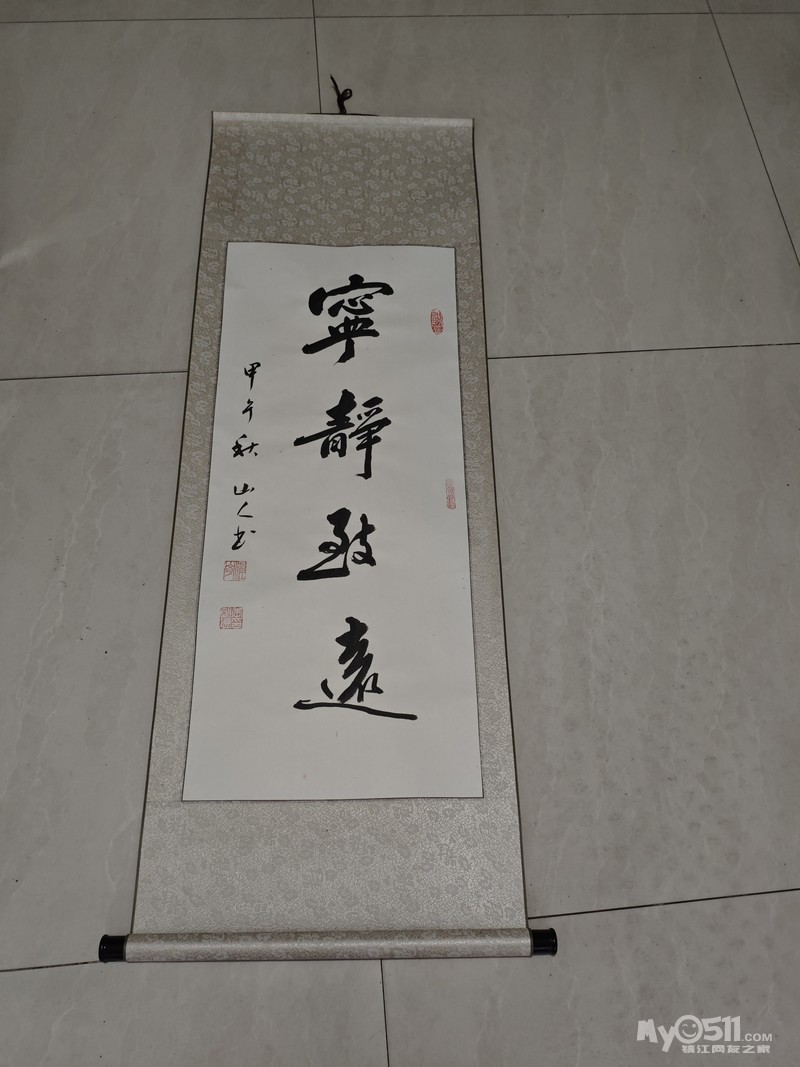 寧靜致遠
甲午秋 山人书
MyO511.COM
镇江网友之家